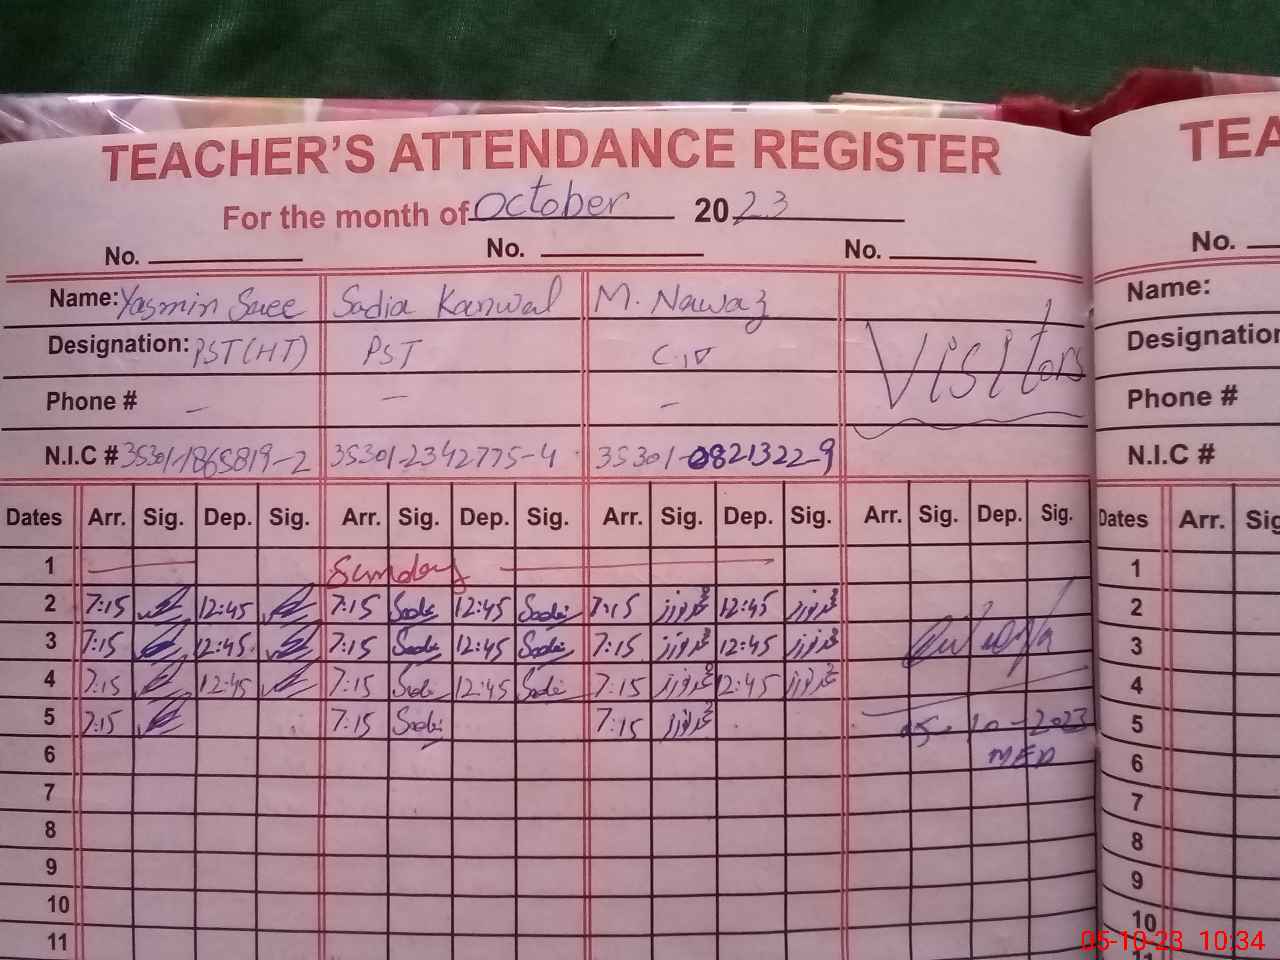 TEACHER'S ATTENDANCE REGISTER
TEA
For the month of October 2023
No. No. No. No.
Name: Yasmin Sadia Kanwal M. Nawaz Name:
Designation: PST(HT) PST Visitors Designation
Phone # – – – Phone #
N.I.C # 35301-1865819-2 35301-2342775-4 35301-0821322-9 N.I.C #
Dates Arr. Sig. Dep. Sig. Arr. Sig. Dep. Sig. Arr. Sig. Dep. Sig. Arr. Sig. Dep. Sig. Dates Arr. Sig
1 Sunday 1
2 7:15 12:45 7:15 Sadi 12:45 Sadi 7:15 12:45 2
3 7:15 12:45 7:15 Sadi 12:45 Sadi 7:15 12:45 3
4 7:15 12:45 7:15 Sadi 12:45 Sadi 7:15 12:45 4
5 7:15 7:15 Sadi 7:15 05-10-2023 5
6 6
7 7
8 8
9 9
10 10
11 11
05-10-23 10:34